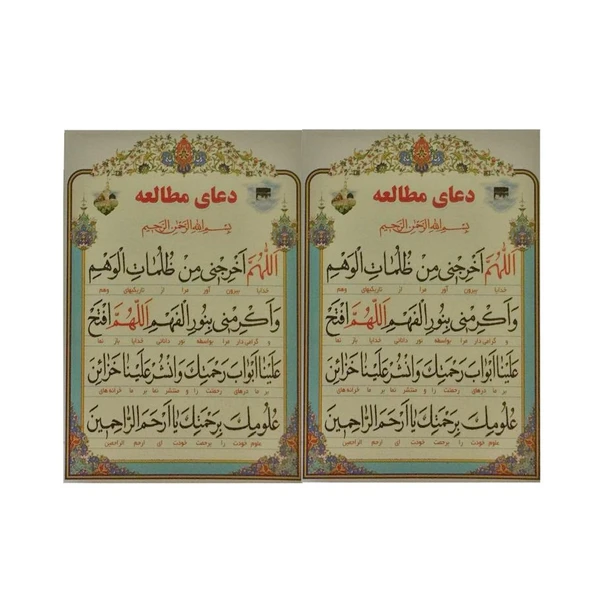 دعای مطالعه
بِسْمِ اللهِ الرَّحْمٰنِ الرَّحِيمِ
اَللّهُمَّ اَخْرِجْنى مِنْ ظُلُماتِ الْوَهْمِ
خدایا بیرون آور مرا از تاریکیهای وهم
وَاَكْرِمْنى بِنُورِ الْفَهْمِ اَللّهُمَّ افْتَحْ
و گرامی دار مرا بواسطه نور دانائی خدایا باز نما
عَلَيْنا اَبْوابَ رَحْمَتِكَ وَانْشُرْ عَلَيْنا خَزائِنَ
بر ما درهای رحمتت را و منتشر نما بر ما خزانه های
عُلُومِكَ بِرَحْمَتِكَ يا اَرْحَمَ الرّاحِمينَ
علوم خودت را برحمت خودت ای ارحم الراحمین
دعای مطالعه
بِسْمِ اللهِ الرَّحْمٰنِ الرَّحِيمِ
اَللّهُمَّ اَخْرِجْنى مِنْ ظُلُماتِ الْوَهْمِ
خدایا بیرون آور مرا از تاریکیهای وهم
وَاَكْرِمْنى بِنُورِ الْفَهْمِ اَللّهُمَّ افْتَحْ
و گرامی دار مرا بواسطه نور دانائی خدایا باز نما
عَلَيْنا اَبْوابَ رَحْمَتِكَ وَانْشُرْ عَلَيْنا خَزائِنَ
بر ما درهای رحمتت را و منتشر نما بر ما خزانه های
عُلُومِكَ بِرَحْمَتِكَ يا اَرْحَمَ الرّاحِمينَ
علوم خودت را برحمت خودت ای ارحم الراحمین